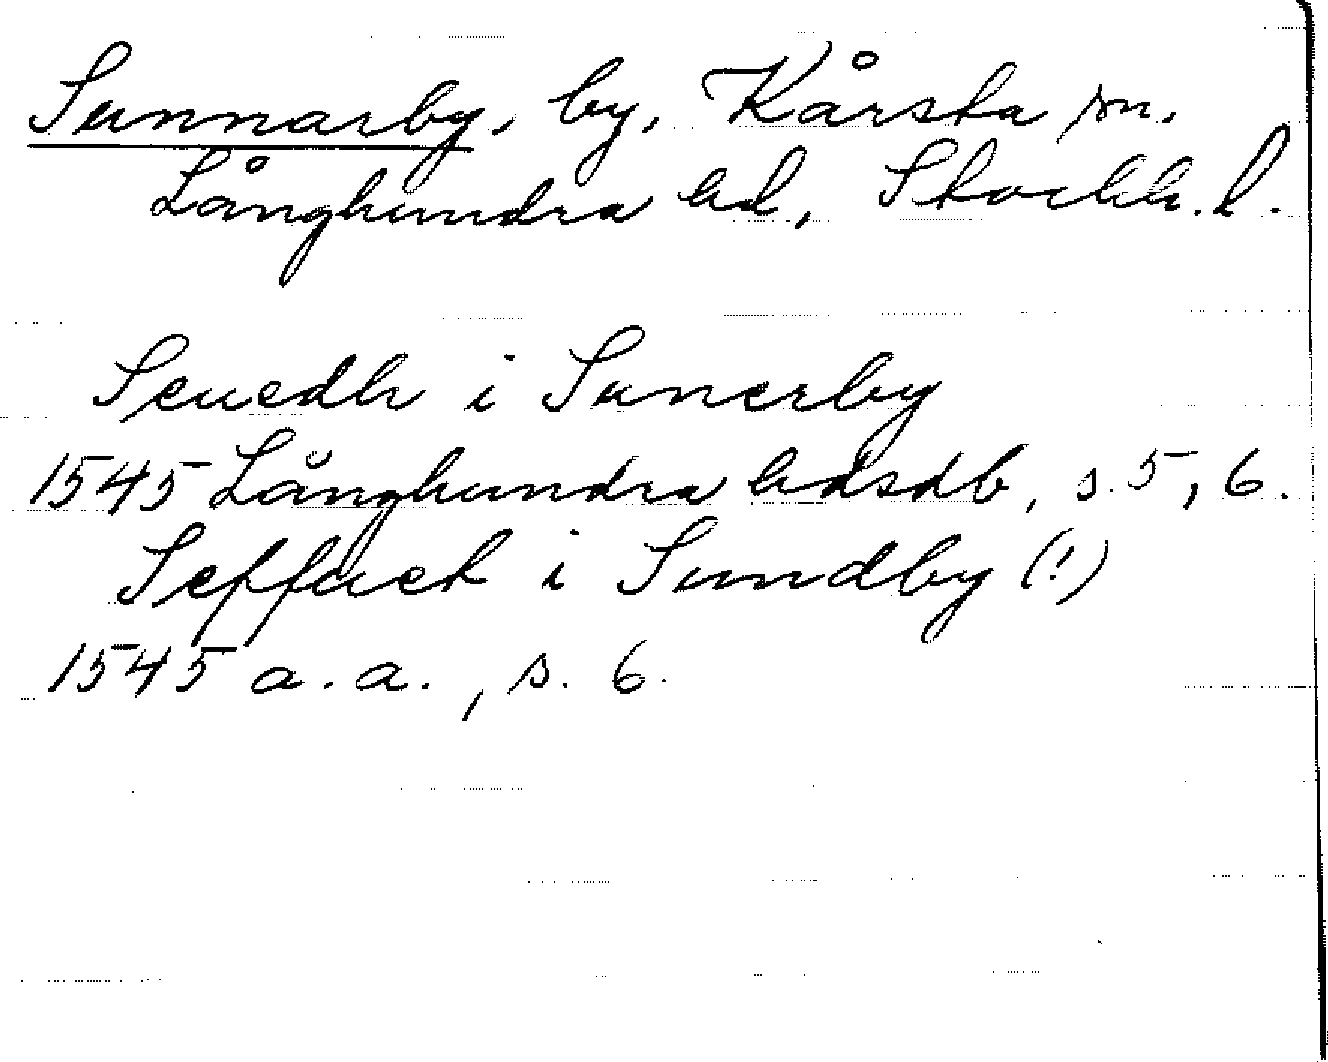 Sunnarby, by, Kårsta sn.
Långhundra hd, Stockh. l.
Seuedh i Sunerby
1545 Långhundra hdsdb, s. 5, 6.
i Sundby (!)
1545 a.a., s. 6.